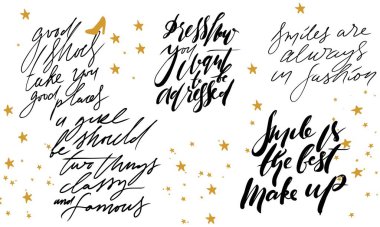 good
shoes
take you
good places
a girl
should
two things
classy
and famous
Dress how
you
want
to be
adressed
Smiles are
always
in fashion
Smile is
the best
make up